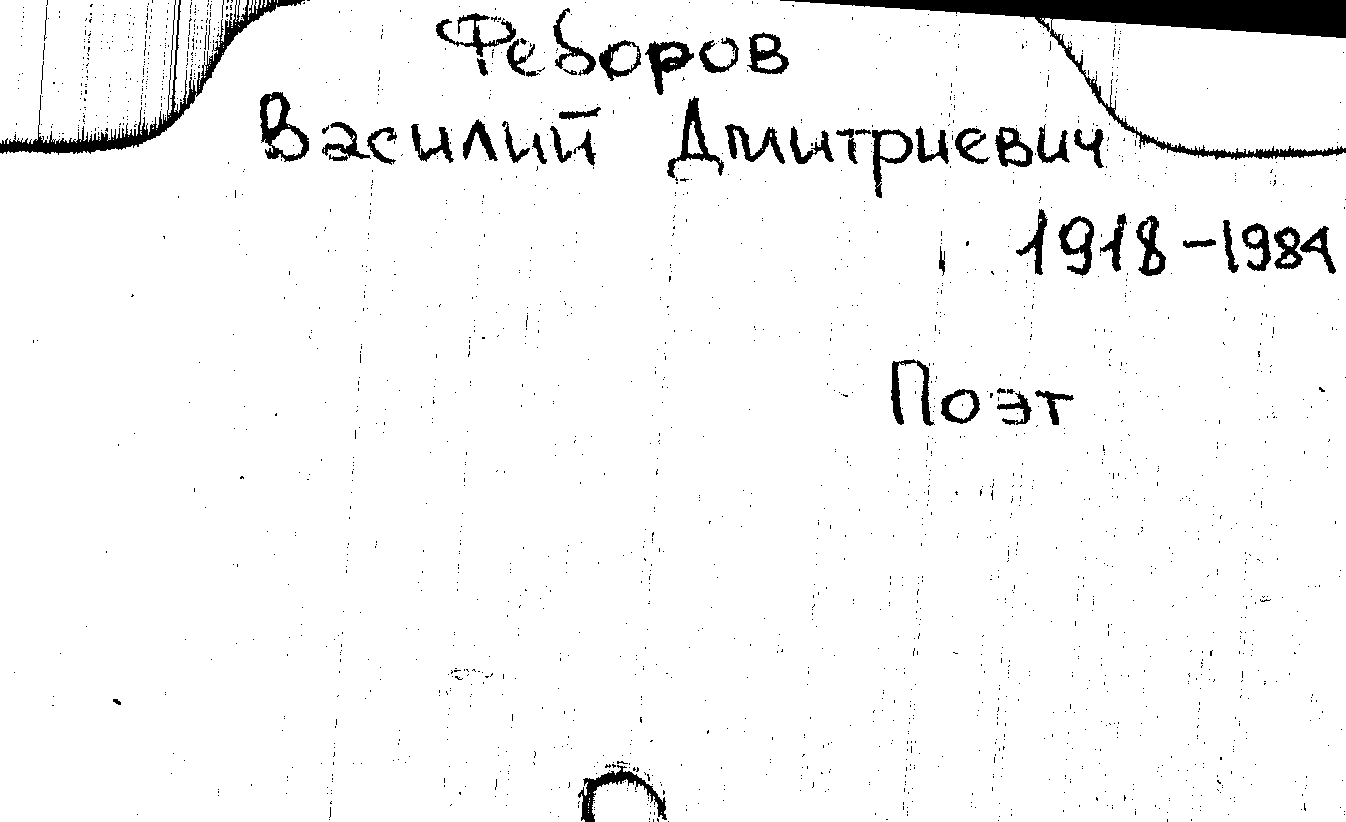 Федоров
Василий Дмитриевич
1918-1984
Поэт